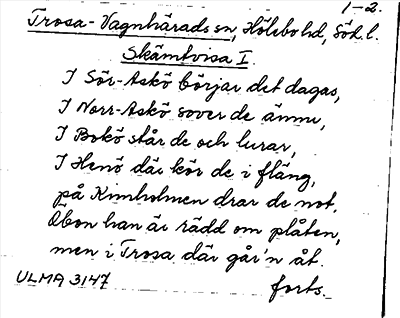 1-2.
Trosa-Vagnhärads sn, Hölebo hd, Söd. l.
Skämtvisa I.
I Sör-Askö börjar det dagas,
I Norr-Askö sover de ännu,
I Bokö står de och lurar,
I Henö där kör de i fläng,
på Kimholmen drar de not.
Öbon han är rädd om plåten,
men i Trosa där går'n åt.
ULMA 3147 forts.